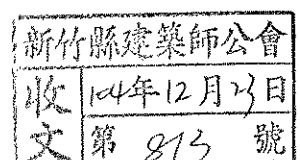 新竹縣建築師公會
收文
104年12月23日
第 813 號